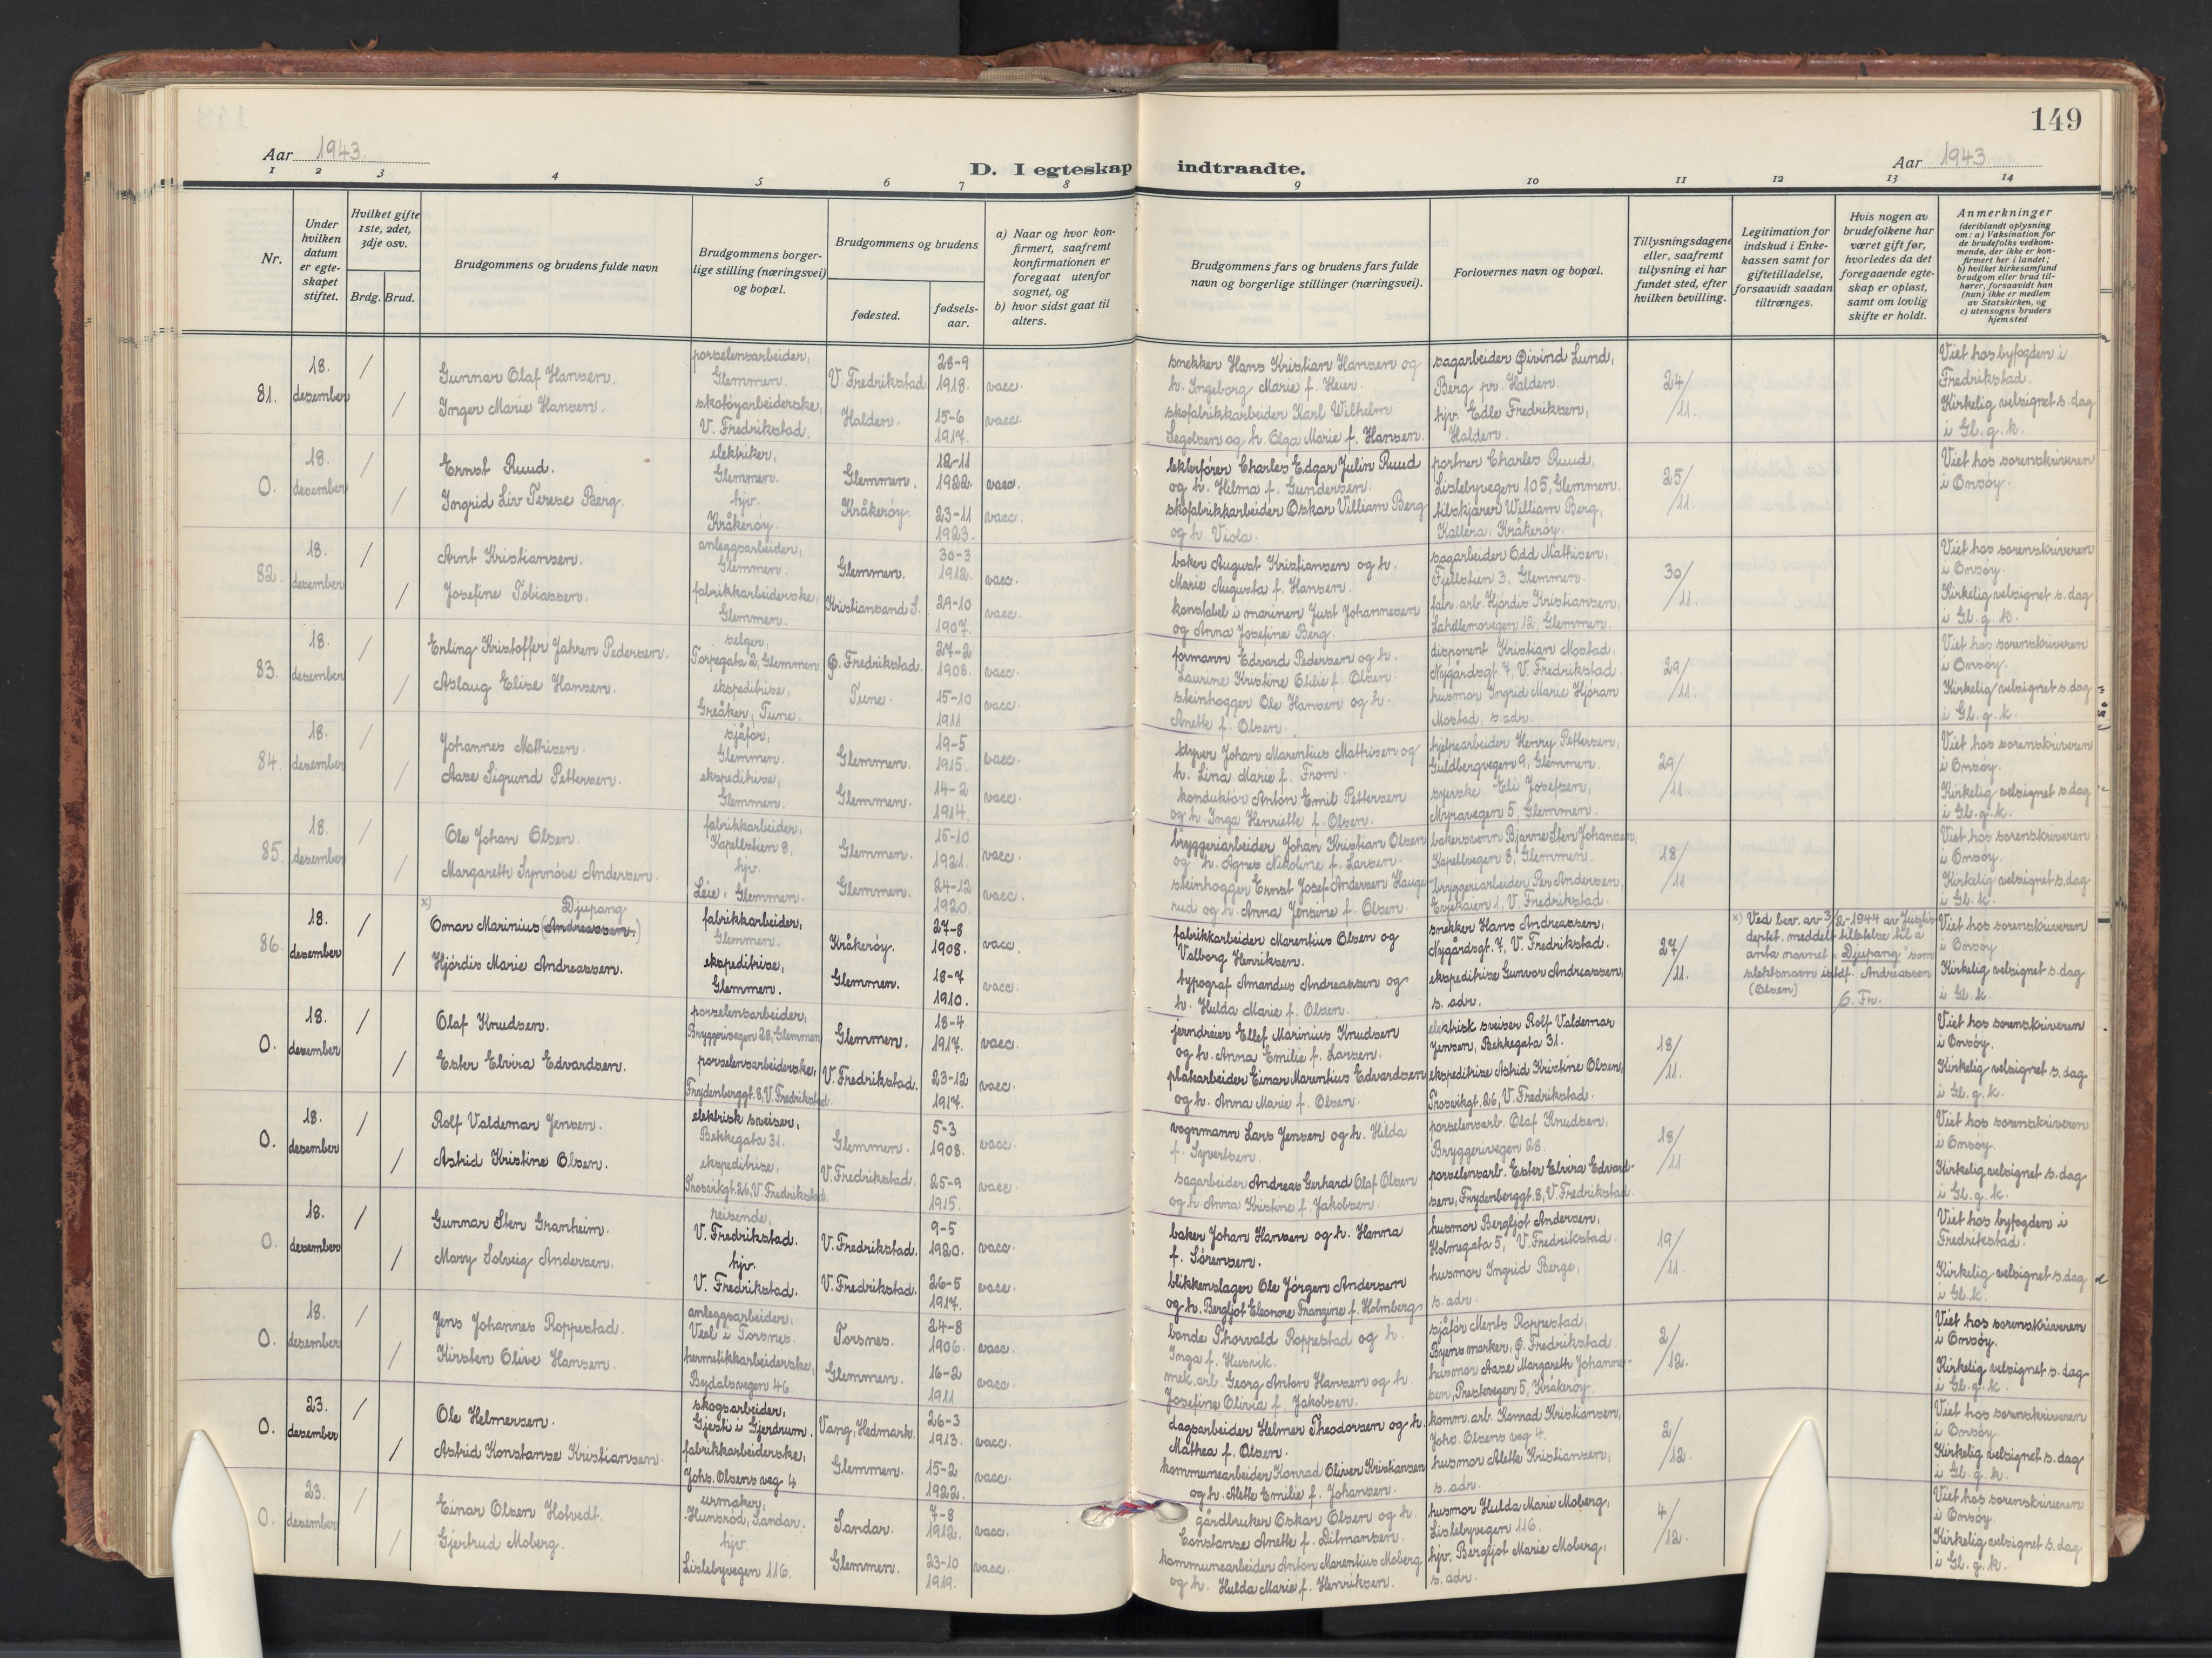 149
Aar 1943.
D. I egteskap indtraadte.
Aar 1943
1 2 3 4 5 6 7 8 9 10 11 12 13 14
Nr.
Under hvilken datum er egteskapet stiftet.
Hvilket gifte 1ste, 2det, 3dje osv.
Brdg. Brud.
Brudgommens og brudens fulde navn
Brudgommens borgerlige stilling (næringsvei) og bopæl.
Brudgommens og brudens
fødested.
fødselsaar.
a) Naar og hvor konfirmert, saafremt konfirmationen er foregaat utenfor sognet, og
b) hvor sidst gaat til alters.
Brudgommens fars og brudens fars fulde navn og borgerlige stillinger (næringsvei).
Forlovernes navn og bopæl.
Tillysningsdagene eller, saafremt tillysning ei har fundet sted, efter hvilken bevilling.
Legitimation for indskud i Enkekassen samt for giftetilladelse, forsaavidt saadan tiltrænges.
Hvis nogen av brudefolkene har været gift før, hvorledes da det foregaaende egteskap er opløst, samt om lovlig skifte er holdt.
Anmerkninger
(deriblandt oplysning om: a) Vaksination for de brudefolks vedkommende, der ikke er konfirmert her i landet;
b) hvilket kirkesamfund brudgom eller brud tilhører, forsaavidt han (hun) ikke er medlem av Statskirken, og
c) utensogns bruders hjemsted
81. 18. desember / /
Gunnar Olaf Hansen.
Inger Marie Hansen.
porselensarbeider,
Glemmen.
skotøyarbeiderske,
V. Fredrikstad.
V. Fredrikstad
Halden.
28-9
1918.
15-6
1917.
vacc.
vacc.
snekker Hans Kristian Hansen og
h. Ingeborg Marie f. Heier.
skofabrikkarbeider Karl Wilhelm
Segelsen og h. Olga Marie f. Hansen.
sagarbeider Øivind Lund,
Berg pr. Halden.
hjv. Edle Fredriksen,
Halden.
24/11.
Viet hos byfogden i
Fredrikstad.
Kirkelig velsignet s. dag
i Gl. g. k.
0. 18. desember / /
Ernst Ruud.
Ingrid Liv Terese Berg.
elektriker,
Glemmen.
hjv.
Kråkerøy.
Glemmen.
Kråkerøy.
12-11
1922.
23-11
1923.
vacc.
vacc.
lekterfører Charles Edgar Julin Ruud
og h. Hilma f. Gundersen.
skofabrikkarbeider Oskar Villiam Berg
og h. Viola.
portner Charles Ruud,
Lislebyvegen 105, Glemmen.
tilskjærer William Berg,
Kallera, Kråkerøy.
25/11.
Viet hos sorenskriveren
i Onsøy.
82. 18. desember / /
Arnt Kristiansen.
Josefine Tobiassen.
anleggsarbeider,
Glemmen.
fabrikkarbeiderske,
Glemmen.
Glemmen.
Kristiansand S.
30-3
1912.
29-10
1907.
vacc.
vacc.
baker August Kristiansen og h.
Marie Augusta f. Hansen.
konstabel i marinen Just Johannesen
og Anna Josefine Berg.
sagarbeider Odd Mathisen,
Fjellstien 3, Glemmen.
fabr. arb. Hjørdis Kristiansen,
Lahellemovegen 12, Glemmen.
30/11.
Viet hos sorenskriveren
i Onsøy.
Kirkelig velsignet s. dag
i Gl. g. k.
83. 18. desember / /
Erling Kristoffer Jahren Pedersen.
Aslaug Elise Hansen.
selger,
Torpegata 2, Glemmen.
ekspeditrise,
Greåker, Tune.
Ø. Fredrikstad.
Tune.
27-2
1908.
15-10
1911
vacc.
vacc.
formann Edvard Pedersen og h.
Laurine Kristine Otilie f. Olsen.
steinhogger Ole Hansen og h.
Anette f. Olsen.
disponent Kristian Mostad,
Nygårdsgt. 7, V. Fredrikstad.
husmor Ingrid Marie Hjøran
Mostad, s. adr.
29/11.
Viet hos sorenskriveren
i Onsøy.
Kirkelig velsignet s. dag
i Gl. g. k.
84. 18. desember / /
Johannes Mathisen.
Aase Sigrund Pettersen.
sjåfør,
Glemmen.
ekspeditrise,
Glemmen.
Glemmen.
Glemmen.
19-5
1915.
14-2
1914.
vacc.
vacc.
styver Johan Marentius Mathisen og
h. Lina Marie f. From.
konduktør Anton Emil Pettersen
og h. Inga Henriette f. Olsen.
hjelpearbeider Henry Pettersen,
Guldbergvegen 9, Glemmen.
syerske Eli Josefsen,
Myravegen 5, Glemmen.
29/11.
Viet hos sorenskriveren
i Onsøy.
Kirkelig velsignet s. dag
i Gl. g. k.
85. 18. desember / /
Ole Johan Olsen.
Margareth Synnøve Andersen.
fabrikkarbeider,
Kapellstien 8,
hjv.
Leie, Glemmen.
Glemmen.
Glemmen.
15-10
1921.
24-12
1920.
vacc.
vacc.
bryggeriarbeider Johan Kristian Olsen
og h. Agnes Nikoline f. Larsen.
steinhogger Ernst Josef Andersen Hauge-
rud og h. Anna Jensine f. Olsen.
bakersvenn Bjarne Sten Johansen,
Kapellvegen 8, Glemmen.
bryggeriarbeider Per Andersen,
Evjekaien 1, V. Fredrikstad.
18/11
Viet hos sorenskriveren
i Onsøy.
Kirkelig velsignet s. dag
i Gl. k.
86. 18. desember / /
x) Djupang
Omar Marinius (Andreassen.)
Hjørdis Marie Andreassen.
fabrikkarbeider,
Glemmen.
ekspeditrise,
Glemmen.
Kråkerøy.
Glemmen.
27-8
1908.
18-7
1910.
vacc.
vacc.
fabrikkarbeider Marentius Olsen og
Valborg Henriksen.
typograf Amandus Andreassen og
h. Hulda Marie f. Olsen.
snekker Hans Andreassen,
Nygårdsgt. 7, V. Fredrikstad.
ekspeditrise Gunvor Andreassen,
s. adr.
27/11.
x) Ved bev. av 3/2-1944 av Justis-
deptet. meddelt tillatelse til å
anta navnet "Djupang" som
slektsnavn istdf. Andreassen
(Olsen)
G. Fr.
Viet hos sorenskriveren
i Onsøy.
Kirkelig velsignet s. dag
i Gl. k.
0. 18. desember / /
Olaf Knudsen.
Ester Elvira Edvardsen.
porselensarbeider,
Bryggerivegen 28, Glemmen
porselensarbeiderske,
Frydenberggt. 8, V. Fredrikstad.
Glemmen.
V. Fredrikstad.
18-4
1917.
23-12
1917.
vacc.
vacc.
jerndreier Ellef Marinius Knudsen
og h. Anna Emilie f. Larsen.
platearbeider Einar Marentius Edvardsen
og h. Anna Marie f. Olsen.
elektrisk sveiser Rolf Valdemar
Jensen, Bekkegata 31.
ekspeditrise Astrid Kristine Olsen,
Trosvikgt. 26, V. Fredrikstad.
18/11.
Viet hos sorenskriveren
i Onsøy.
Kirkelig velsignet s. dag
i Gl. g. k.
0. 18. desember / /
Rolf Valdemar Jensen.
Astrid Kristine Olsen.
elektrisk sveiser,
Bekkegata 31.
ekspeditrise,
Trosvikgt. 26, V. Fredrikstad.
Glemmen.
V. Fredrikstad.
5-3
1908.
25-9
1915.
vacc.
vacc.
vognmann Lars Jensen og h. Hilda
f. Syvertsen.
sagarbeider Andreas Gerhard Olaf Olsen
og h. Anna Kristine f. Jakobsen.
porselensarb. Olaf Knudsen,
Bryggerivegen 28.
porselensarb. Ester Elvira Edvard-
sen, Frydenberggt. 8, V. Fredrikstad.
18/11
Viet hos sorenskriveren
i Onsøy.
Kirkelig velsignet s. dag
i Gl. g. k.
0. 18. desember / /
Gunnar Sten Granheim.
Mary Solveig Andersen.
reisende,
V. Fredrikstad.
hjv.
V. Fredrikstad.
V. Fredrikstad.
V. Fredrikstad.
9-5
1920.
26-5
1917.
vacc.
vacc.
baker Johan Hansen og h. Hanna
f. Sørensen.
blikkenslager Ole Jørgen Andersen
og h. Bergljot Eleonore Frangine f. Holmberg
husmor Bergljot Andersen,
Holmegata 5, V. Fredrikstad.
husmor Ingrid Berge,
s. adr.
19/11.
Viet hos byfogden i
Fredrikstad.
Kirkelig velsignet s. dag
i Gl. k.
0. 18. desember / /
Jens Johannes Roppestad.
Kirsten Olive Hansen.
anleggsarbeider,
Veel i Torsnes.
hermetikkarbeiderske,
Bydalsvegen 46.
Torsnes.
Glemmen.
24-8
1906.
16-2
1911
vacc.
vacc.
bonde Thorvald Roppestad og h.
Inga f. Husvik.
mek. arb. Georg Anton Hansen og h.
Josefine Olivia f. Jakobsen.
sjåfør Ments Roppestad,
Byens marker, Ø. Fredrikstad.
husmor Aase Margareth Johanne-
sen, Prestevegen 5, Kråkerøy.
2/12.
Viet hos sorenskriveren
i Onsøy.
Kirkelig velsignet s. dag
i Gl. g. k.
0. 23. desember / /
Ole Helmersen.
Astrid Konstanse Kristiansen.
skogsarbeider,
Gjesti i Gjerdrum.
fabrikkarbeiderske,
Johs. Olsens veg 4
Vang, Hedmark.
Glemmen.
26-3
1913.
15-2
1922.
vacc.
vacc.
dagsarbeider Helmer Theodorsen og h.
Mathea f. Olsen.
kommunearbeider Konrad Oliver Kristiansen
og h. Alette Emilie f. Johansen.
komm. arb. Konrad Kristiansen,
Johs. Olsens veg 4.
husmor Alette Kristiansen,
s. adr.
2/12.
Viet hos sorenskriveren
i Onsøy.
Kirkelig velsignet s. dag
i Gl. g. k.
0. 23. desember / /
Einar Olsen Hotvedt.
Gjertrud Moberg.
urmaker,
Hunsrød, Sandar.
hjv.
Lislebyvegen 116.
Sandar.
Glemmen.
7-8
1912.
23-10
1919.
vacc.
vacc.
gårdbruker Oskar Olsen og h.
Constanse Anette f. Ditmansen.
kommunearbeider Anton Marentius Moberg
og h. Hulda Marie f. Henriksen.
husmor Hulda Marie Moberg,
Lislebyvegen 116.
hjv. Bergljot Marie Moberg,
s. adr.
4/12.
Viet hos sorenskriveren
i Onsøy.
Kirkelig velsignet s. dag
i Gl. g. k.